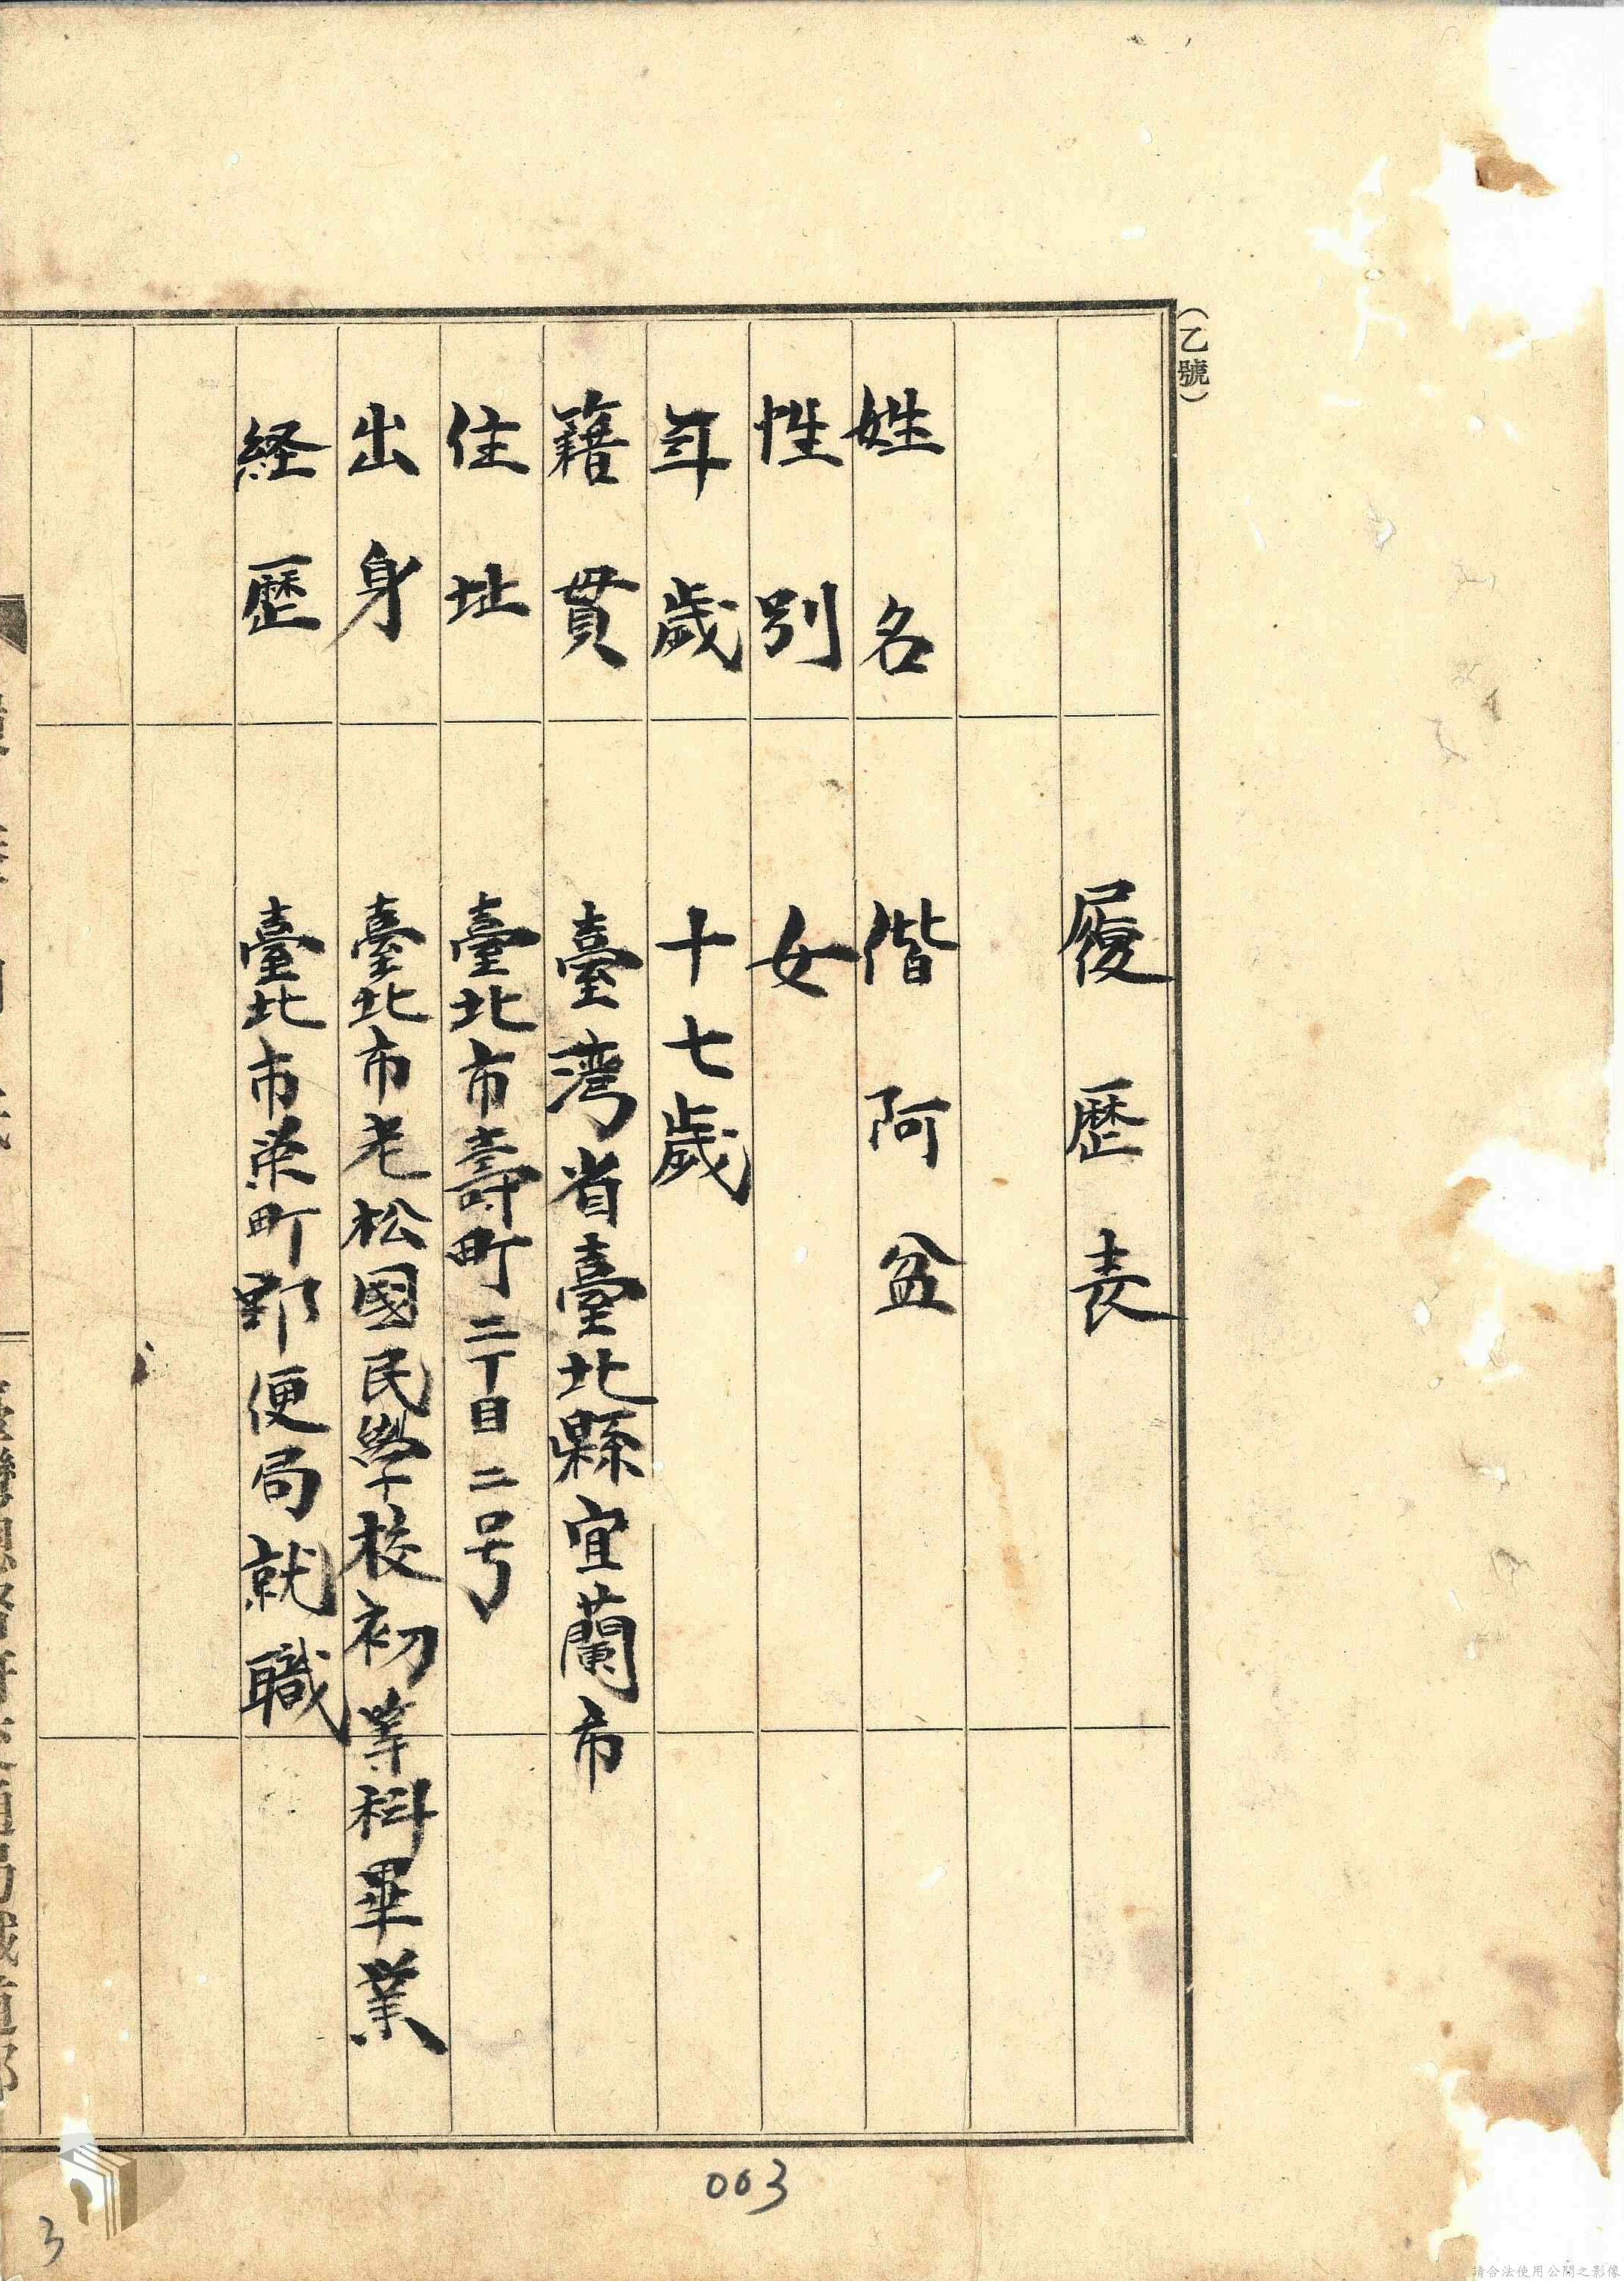 (乙號)
履歷表
姓名 偕阿盆
性別 女
年歲 十七歲
籍貫 臺湾省臺北縣宜蘭市
住址 臺北市壽町二丁目二号
出身 臺北市老松國民學校初等科畢業
経歷 臺北市栄町郵便局就職
003
3
請合法使用公開之影像